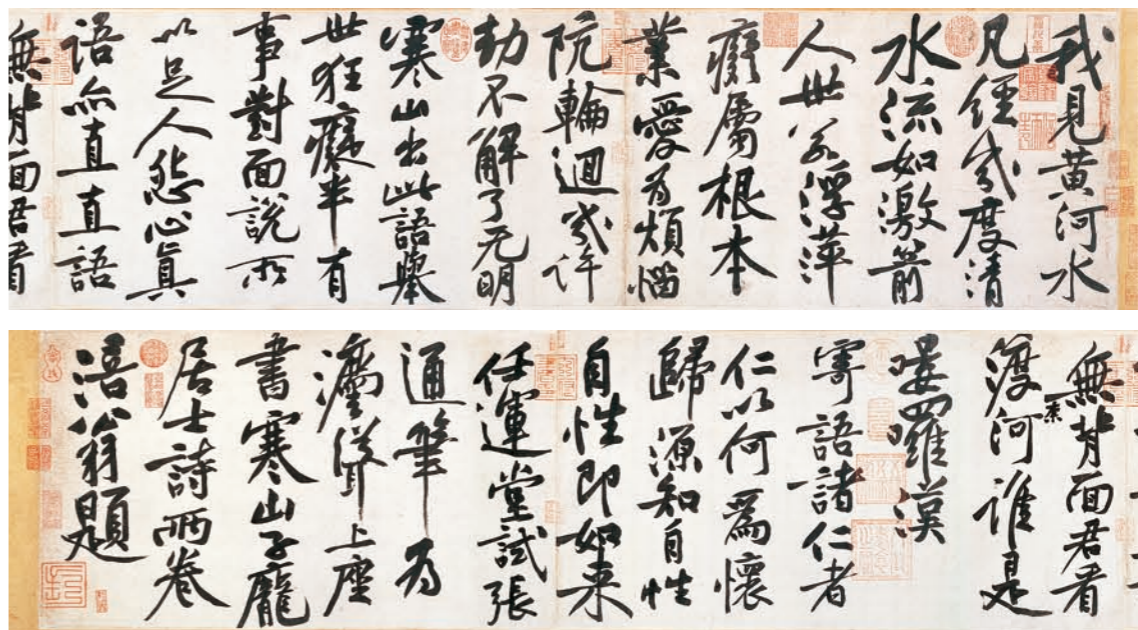 我見黃河水
凡經幾度清
水流如激箭
人世若浮萍
癡屬根本
業愛為煩惱
阬輪迴幾許
劫不解了无明
寒山出此語舉
世狂癡半有
事對面說所
以足人怨心真
語亦直直語
無背面君看
無背面君看
渡柰河誰是
嘍囉漢
寄語諸仁者
仁以何爲懷
歸源知自性
自性即如来
任運堂試張
通筆為
灊聳上座
書寒山子龐
居士詩兩卷
涪翁題